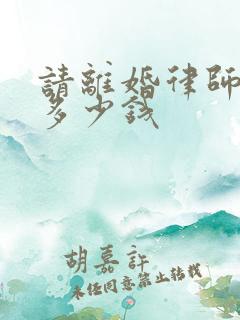 請離婚律師
多少錢
胡慕許
未任同意禁止转载